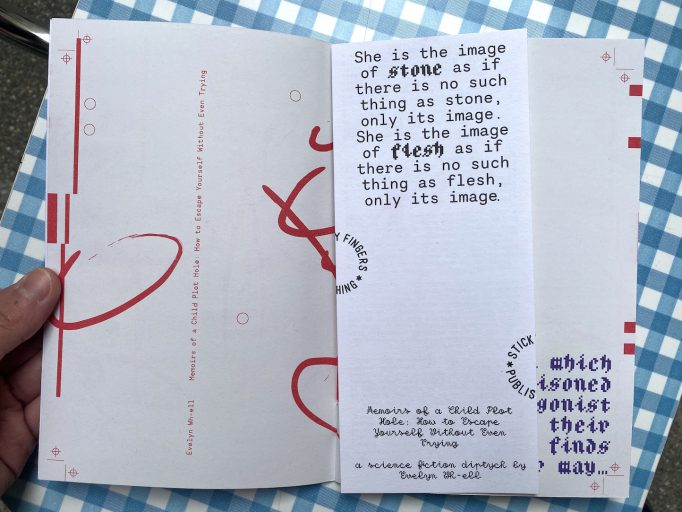 Evelyn Wh-ell Memoirs of a Child Plot Hole: How to Escape Yourself Without Even Trying
She is the image
of stone as if
there is no such
thing as stone,
only its image.
She is the image
of flesh as if
there is no such
thing as flesh,
only its image.
FINGERS
STICK
PUBLIS
Memoirs of a Child Plot
Hole: How to Escape
Yourself Without Even
Trying
a science fiction diptych by
Evelyn Wh-ell
which
their
finds
way...